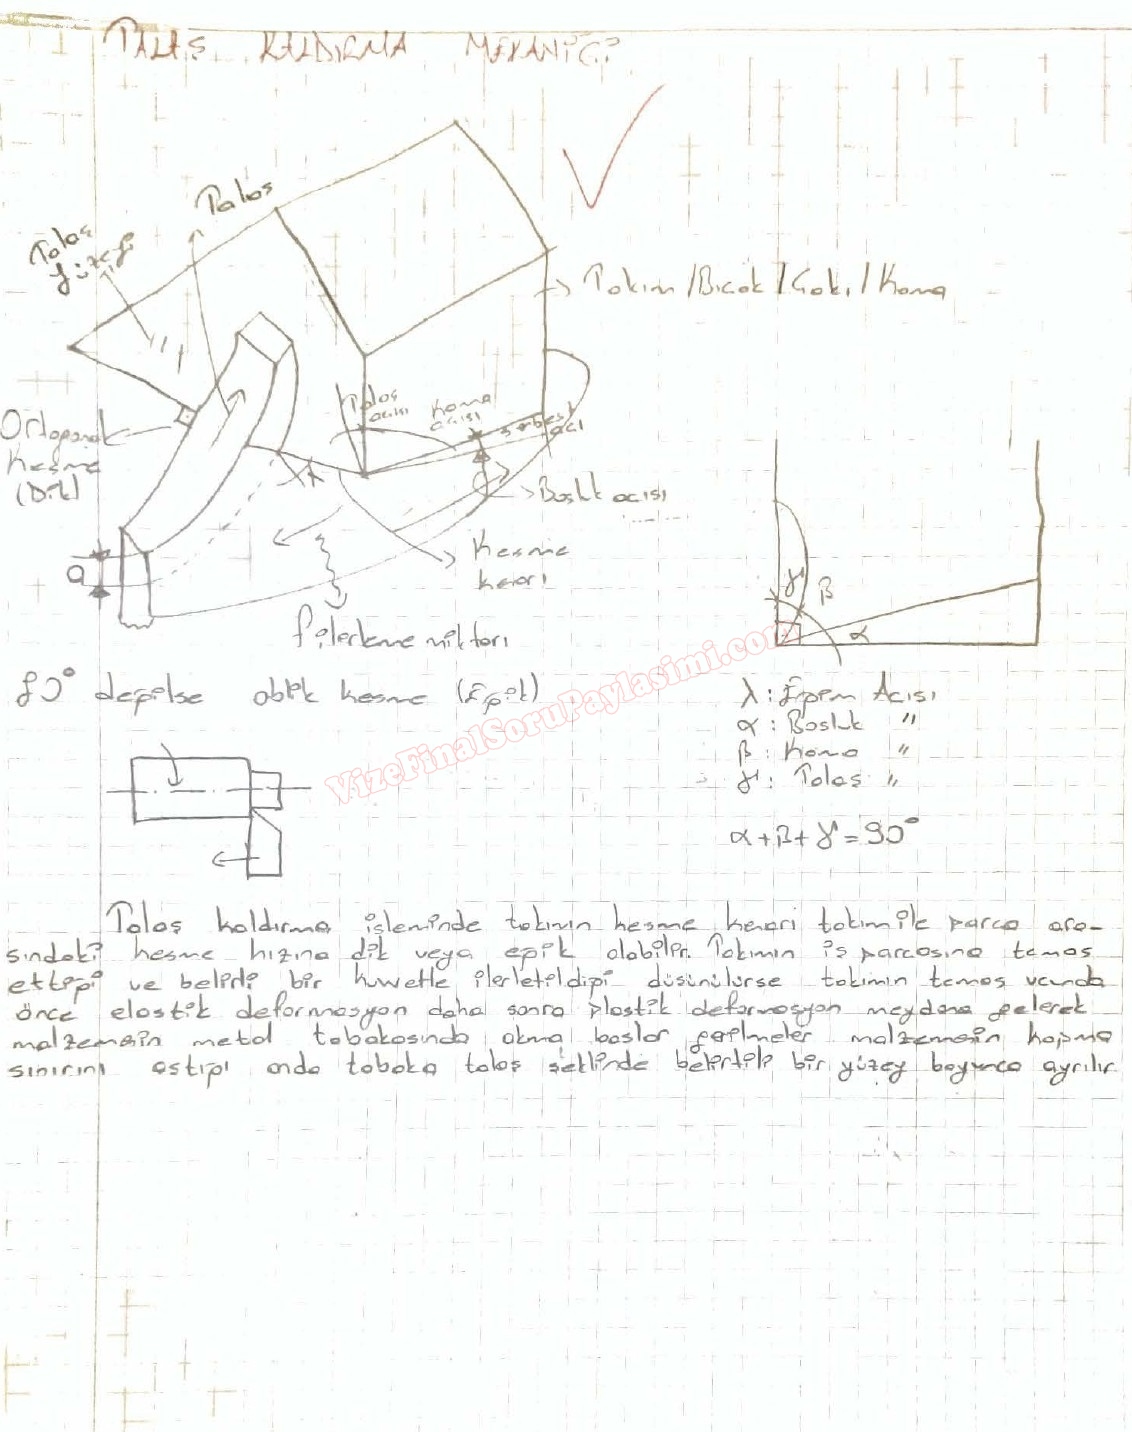 TALAŞ KALDIRMA MEKANİĞİ
Talaş
Talaş
yüzeyi
Takım/Bıçak/Çakı/Kama
Talaş
açısı
Kama
açısı
serbest
açı
Ortogonal
Kesme
(Dik)
Boşluk açısı
a
λ
Kesme
kenarı
f ilerleme miktarı
γ
β
α
90° değilse oblik kesme (Eğik)
λ: Eğim Açısı
α: Boşluk "
β: Kama "
γ: Talaş "
α+β+γ=90°
VizeFinalSoruPaylasimi.com
Talaş kaldırma işleminde takımın kesme kenarı takım ile parça ara-
sındaki kesme hızına dik veya eğik olabilir. Takımın iş parçasına temas
ettiği ve belirli bir kuvvetle ilerletildiği düşünülürse takımın temas ucunda
önce elastik deformasyon daha sonra plastik deformasyon meydana gelerek
malzemenin metal tabakasında akma başlar gerilmeler malzemenin kopma
sınırını aştığı anda tabaka talaş şeklinde belirtili bir yüzey boyunca ayrılır